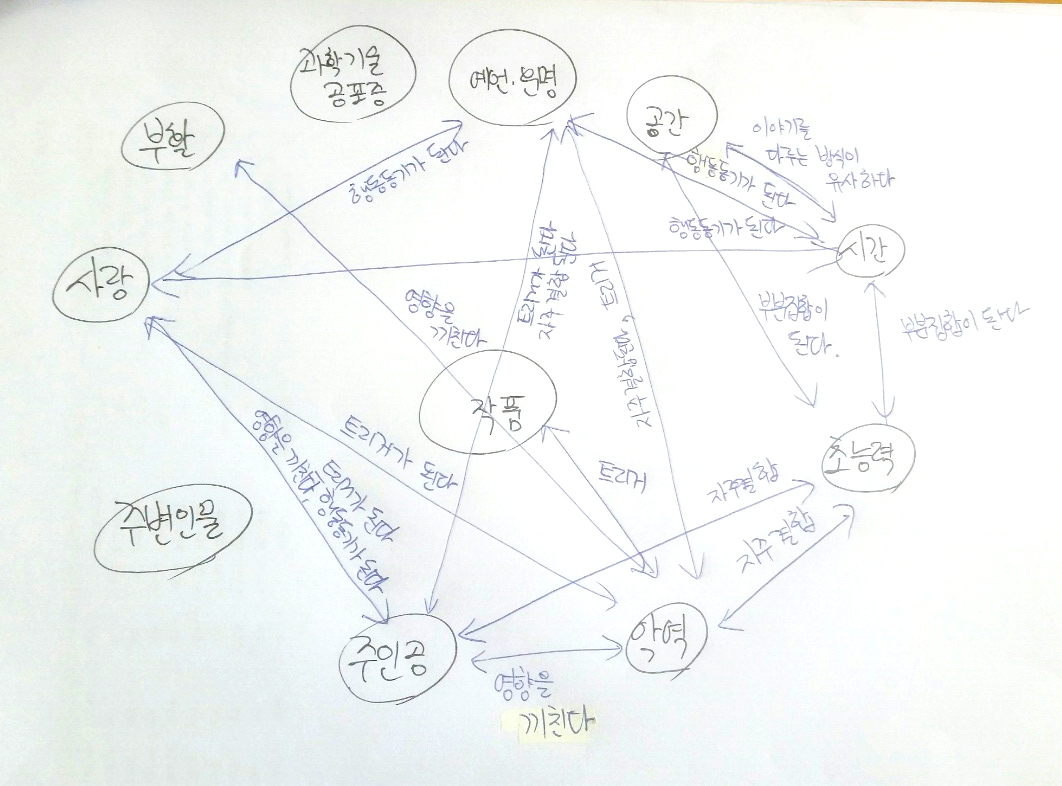 과학기술
공포증
예언·운명
공간
부활
이야기를
다루는 방식이
유사하다
행동동기가 된다
행동동기가 된다
행동동기가 된다
시간
사랑
트리거가 된다
자주 결합된다
자주결합된다, 트리거
영향을
끼친다
부분집합이
된다.
부분집합이 된다
작품
트리거가 된다
트리거
초능력
자주결합
자주결합
영향을 끼친다, 행동동기가 된다
트리거가 된다
주변인물
주인공
악역
영향을
끼친다